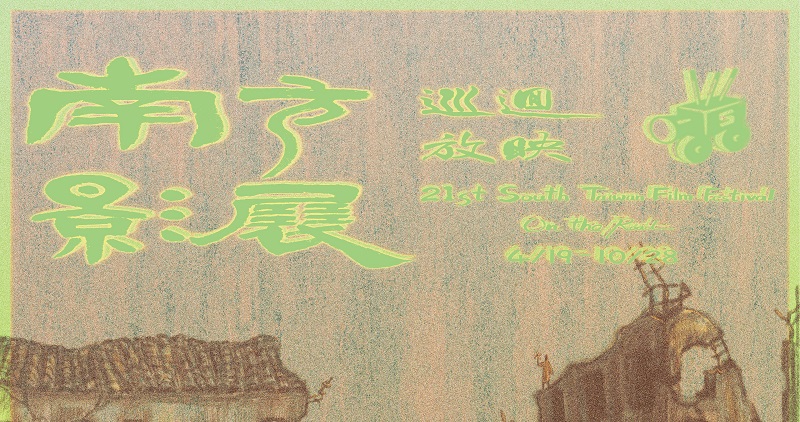 南方
影展
巡迴
放映
21st South Taiwan Film Festival
On the Road
4/19-10/28